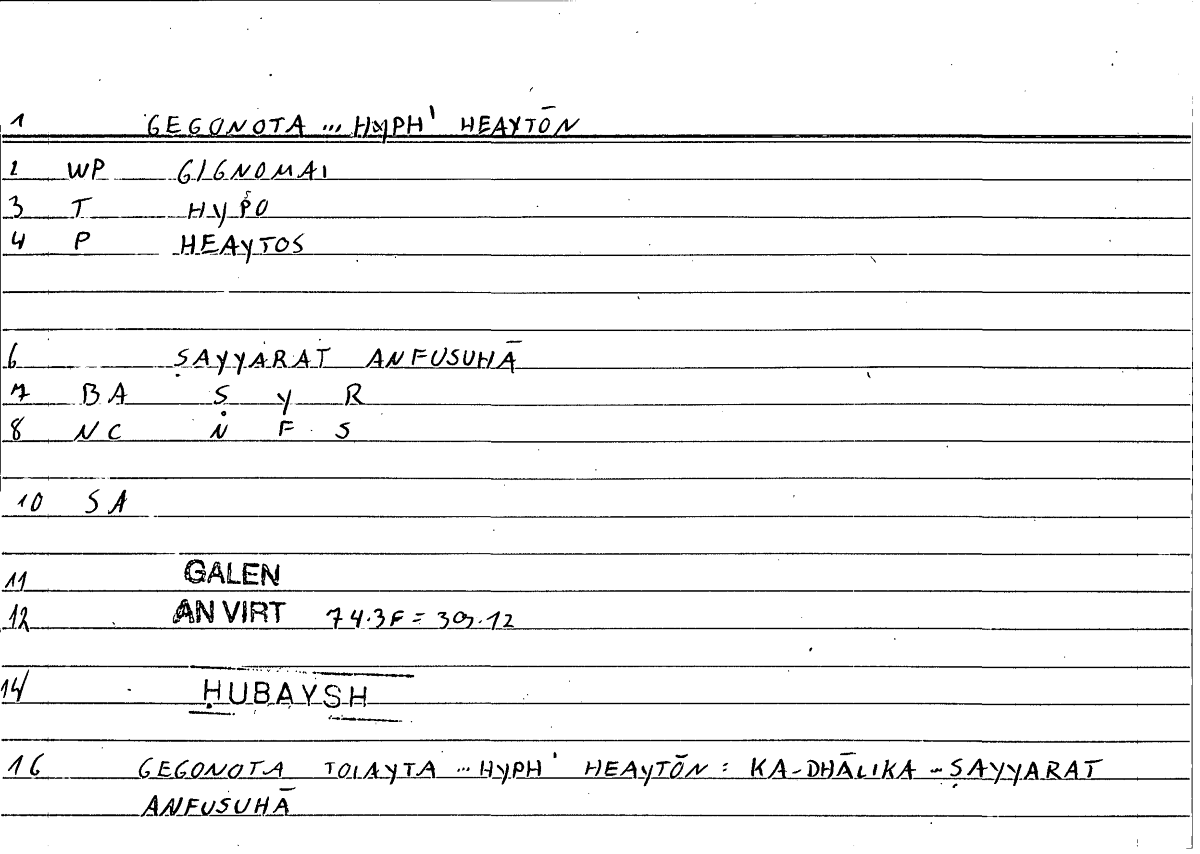 1 GEGONOTA ... HYPH' HEAYTŌN
2 WP GIGNOMAI
3 T HYPO
4 P HEAYTOS
6 ṢAYYARAT ANFUSUHĀ
7 BA Ṣ Y R
8 NC N F S
10 SA
11 GALEN
12 AN VIRT 74.3F = 309.12
14 ḤUBAYSH
16 GEGONOTA TOIAYTA ... HYPH' HEAYTŌN : KA-DHĀLIKA ... ṢAYYARAT
ANFUSUHĀ